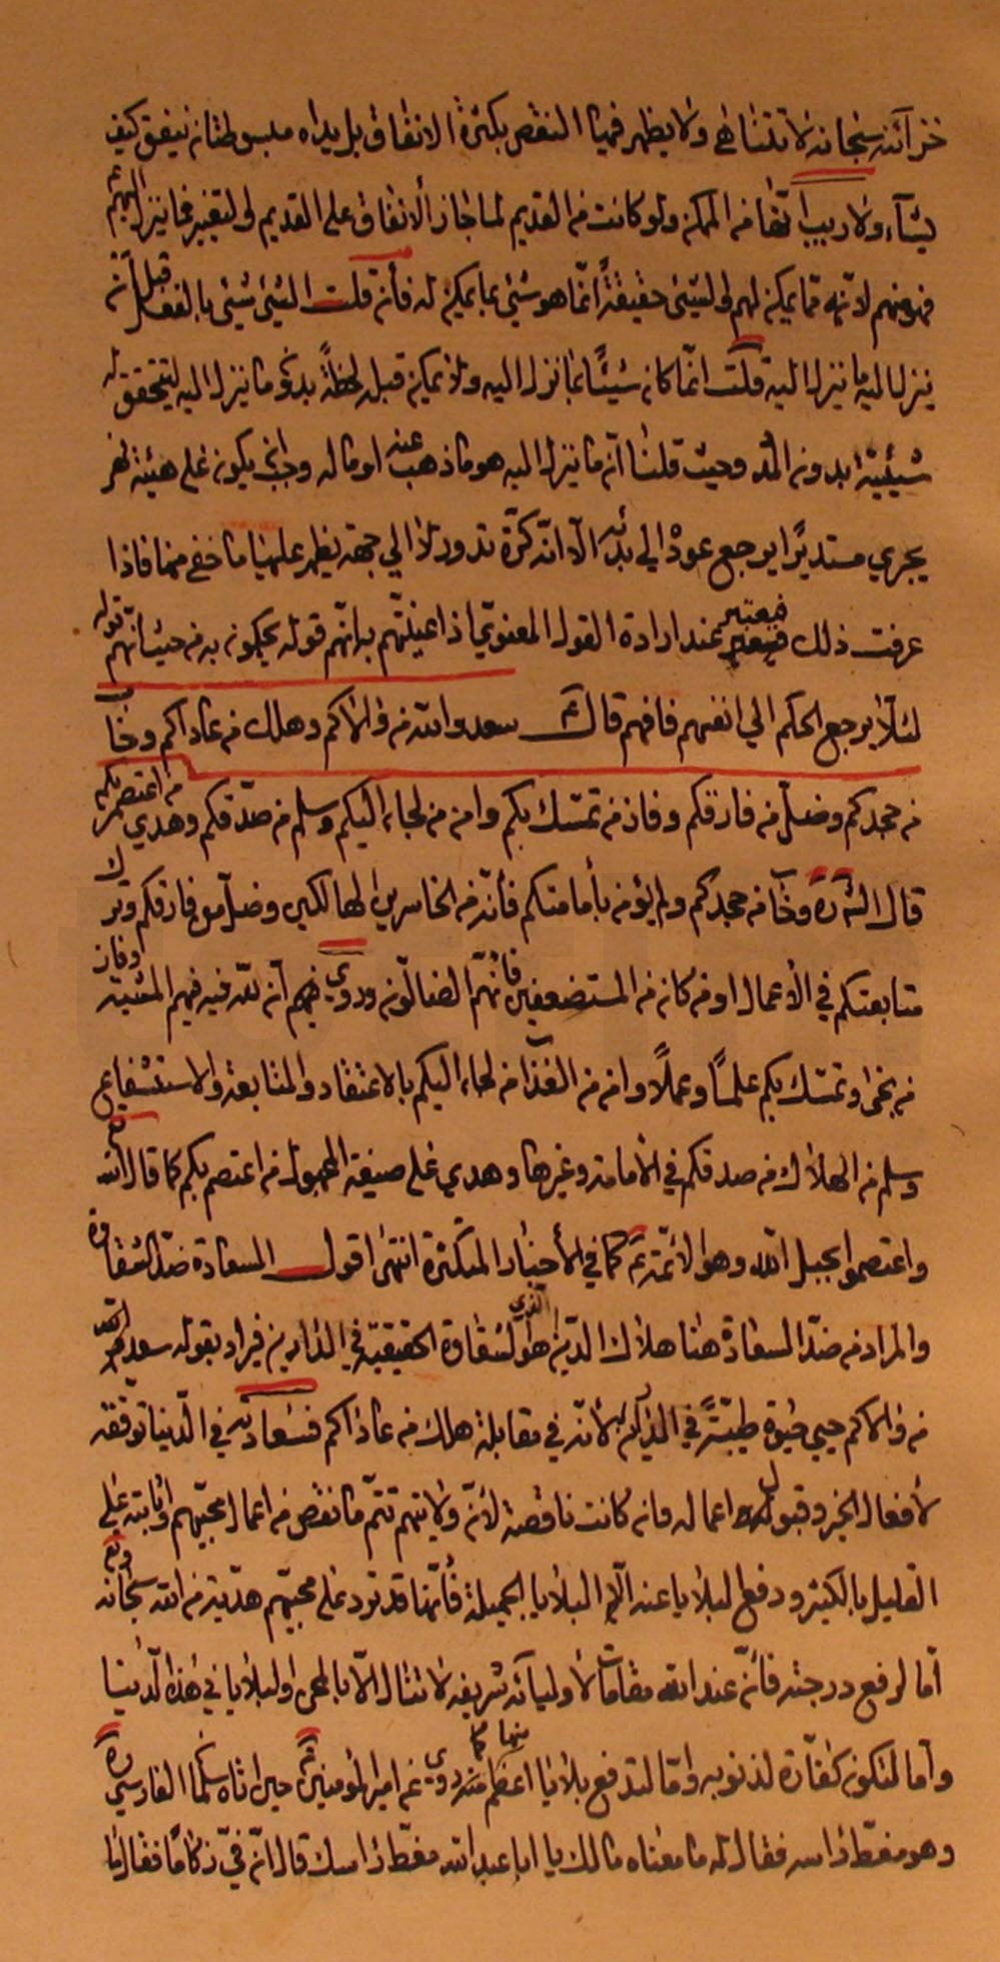 خزائنه سبحانه لا تتناهى ولا يظهر فيها النقص بكثرة الانفاق بل يداه مبسوطتان ينفق كيف
يشآء ولا ريب انها من الممكن ولو كانت من القديم لما جاز الانفاق على القديم لو لتغير فما ينزل اليهم
فهو منهم لانه مما يمكن لهم لو الشئ حقيقةً انما هو شئ بما يمكن له فأن قلت الشئ شئ بالفعل قبل ان
ينزل اليه ما ينزل اليه قلت انما كان شيئًا بما نزل اليه ولا يمكن قبل لحظةً بدون ما ينزل اليه ليتحقق له
شيئية ابدون المدد وحيث قلنا ان ما ينزل اليه هو ما ذهب عنه او ما له وجب ان يكون على هيئة نهر
يجري مستديرًا يرجع عوده الى بدئه الا انه كرة تدور لا الى جهة يظهر عليها ما خفى منها فاذا
عرفت ذلك فيعتبر عند ارادة القول المعنوي اذا عنيتهم به انهم قوله يحكمون به من حيث انهم قوله
لئلا يرجع الحكم الى انفسهم فافهم قال ع سعد والله من والاكم وهلك من عاداكم وخاب
من جحدكم وضل من فارقكم وفاز من تمسك بكم وامن من لجاء اليكم وسلم من صدقكم وهدي من اعتصم بكم
قال الش ره وخاب من جحدكم ولم يؤمن بأمامتكم فأنه من الخاسرين الهالكين وضل من فارقكم وترك
متابعتكم في الأعمال او من كان من المستضعفين فأنهم الضالون وروي فيهم ان لله فيه فيهم المشية وفاز
من نجى وتمسك بكم علمًا وعملًا وامن من العذاب من لجاء اليكم بالاعتقاد والمتابعة والاستشفاع
وسلم من الهلاك من صدقكم في الأمامة وغيرها وهدي على صيغة المجهول من اعتصم بكم كما قال الله تع
واعتصموا بحبل الله وهو الائمة ع كما في الأخبار المتكثرة انتهى اقول السعادة ضد الشقاوة
والمراد من ضد السعادة هنا هلاك الدين الذي هو الشقاوة الحقيقية في الدارين فيراد بقوله سعد والله
من والاكم حيي حيوة طيبةً في الدارين لأنه في مقابلة هلك من عاداكم فسعادته في الدنيا توفقه
لأفعال الخير وقبول اعماله وان كانت ناقصة لأن ولايتهم تتم ما نقص من اعمال محبيهم واثابته على
القليل بالكثير ودفع البلايا عنه الا البلايا الجميلة فأنها قد ترد على محبيهم هدية من الله سبحانه وتع
اما لرفع درجته فأن عند الله مقامات لأوليائه شريفه لا تنال الا بالمحن والبلايا في هذه الدنيا
وأما لتكون كفارة لذنوبه واما لتدفع بلايا اعظم منها كما روي عن امير المؤمنين ع حين اتاه سلمان الفارسي ره
وهو مغط رأسه فقال له ما معناه مالك يا ابا عبد الله مغط رأسك قال ان في زكامًا فقال ما